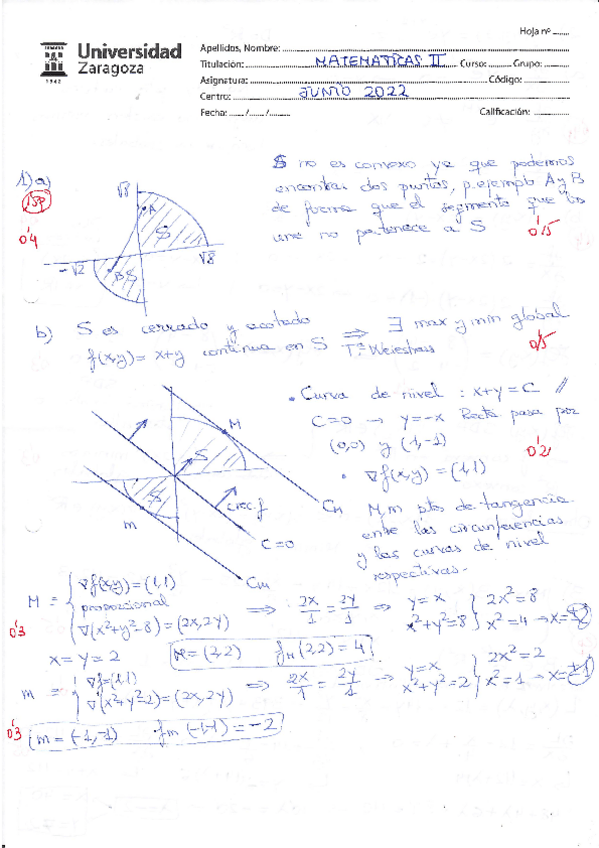 Hoja nº
Universidad
Zaragoza
1542
Apellidos, Nombre:
Titulación: MATEMATICAS II Curso: Grupo:
Asignatura: Código:
Centro: JUNIO 2022
Fecha: / / Calificación:
1) a)
0'4
√8
A
S
√8
-√2
B
S
S no es convexo ya que podemos
encontrar dos puntos, p.ejemplo A y B
de forma que el segmento que los
une no pertenece a S
0'15
b) S es cerrado y acotado
f(x,y) = x+y continua en S ⟹ ∃ max y min global
Tª Weiestras
• Curva de nivel : x+y = C //
C=0 → y=-x Recta pasa por
(0,0) y (1,-1)
0'2
• ∇f(x,y) = (1,1)
M, m ptos de tangencia
entre las circunferencias
y las curvas de nivel
respectivas.
M
S
S
m
crec. f
C=0
M = ∇f(x,y) = (1,1)
proporcional
∇(x²+y²-8) = (2x,2y)
⟹ 2x/1 = 2y/1 ⟹ y=x
x²+y²=8 } 2x²=8
x²=4 → x=±2
0'3
x = y = 2
M = (2,2) f_M(2,2) = 4
m = ∇f=(1,1)
∇(x²+y²-2) = (2x,2y)
⟹ 2x/1 = 2y/1 ⟹ y=x
x²+y²=2 } 2x²=2
x²=1 → x=±1
0'3
m = (-1,-1) f_m(-1,-1) = -2